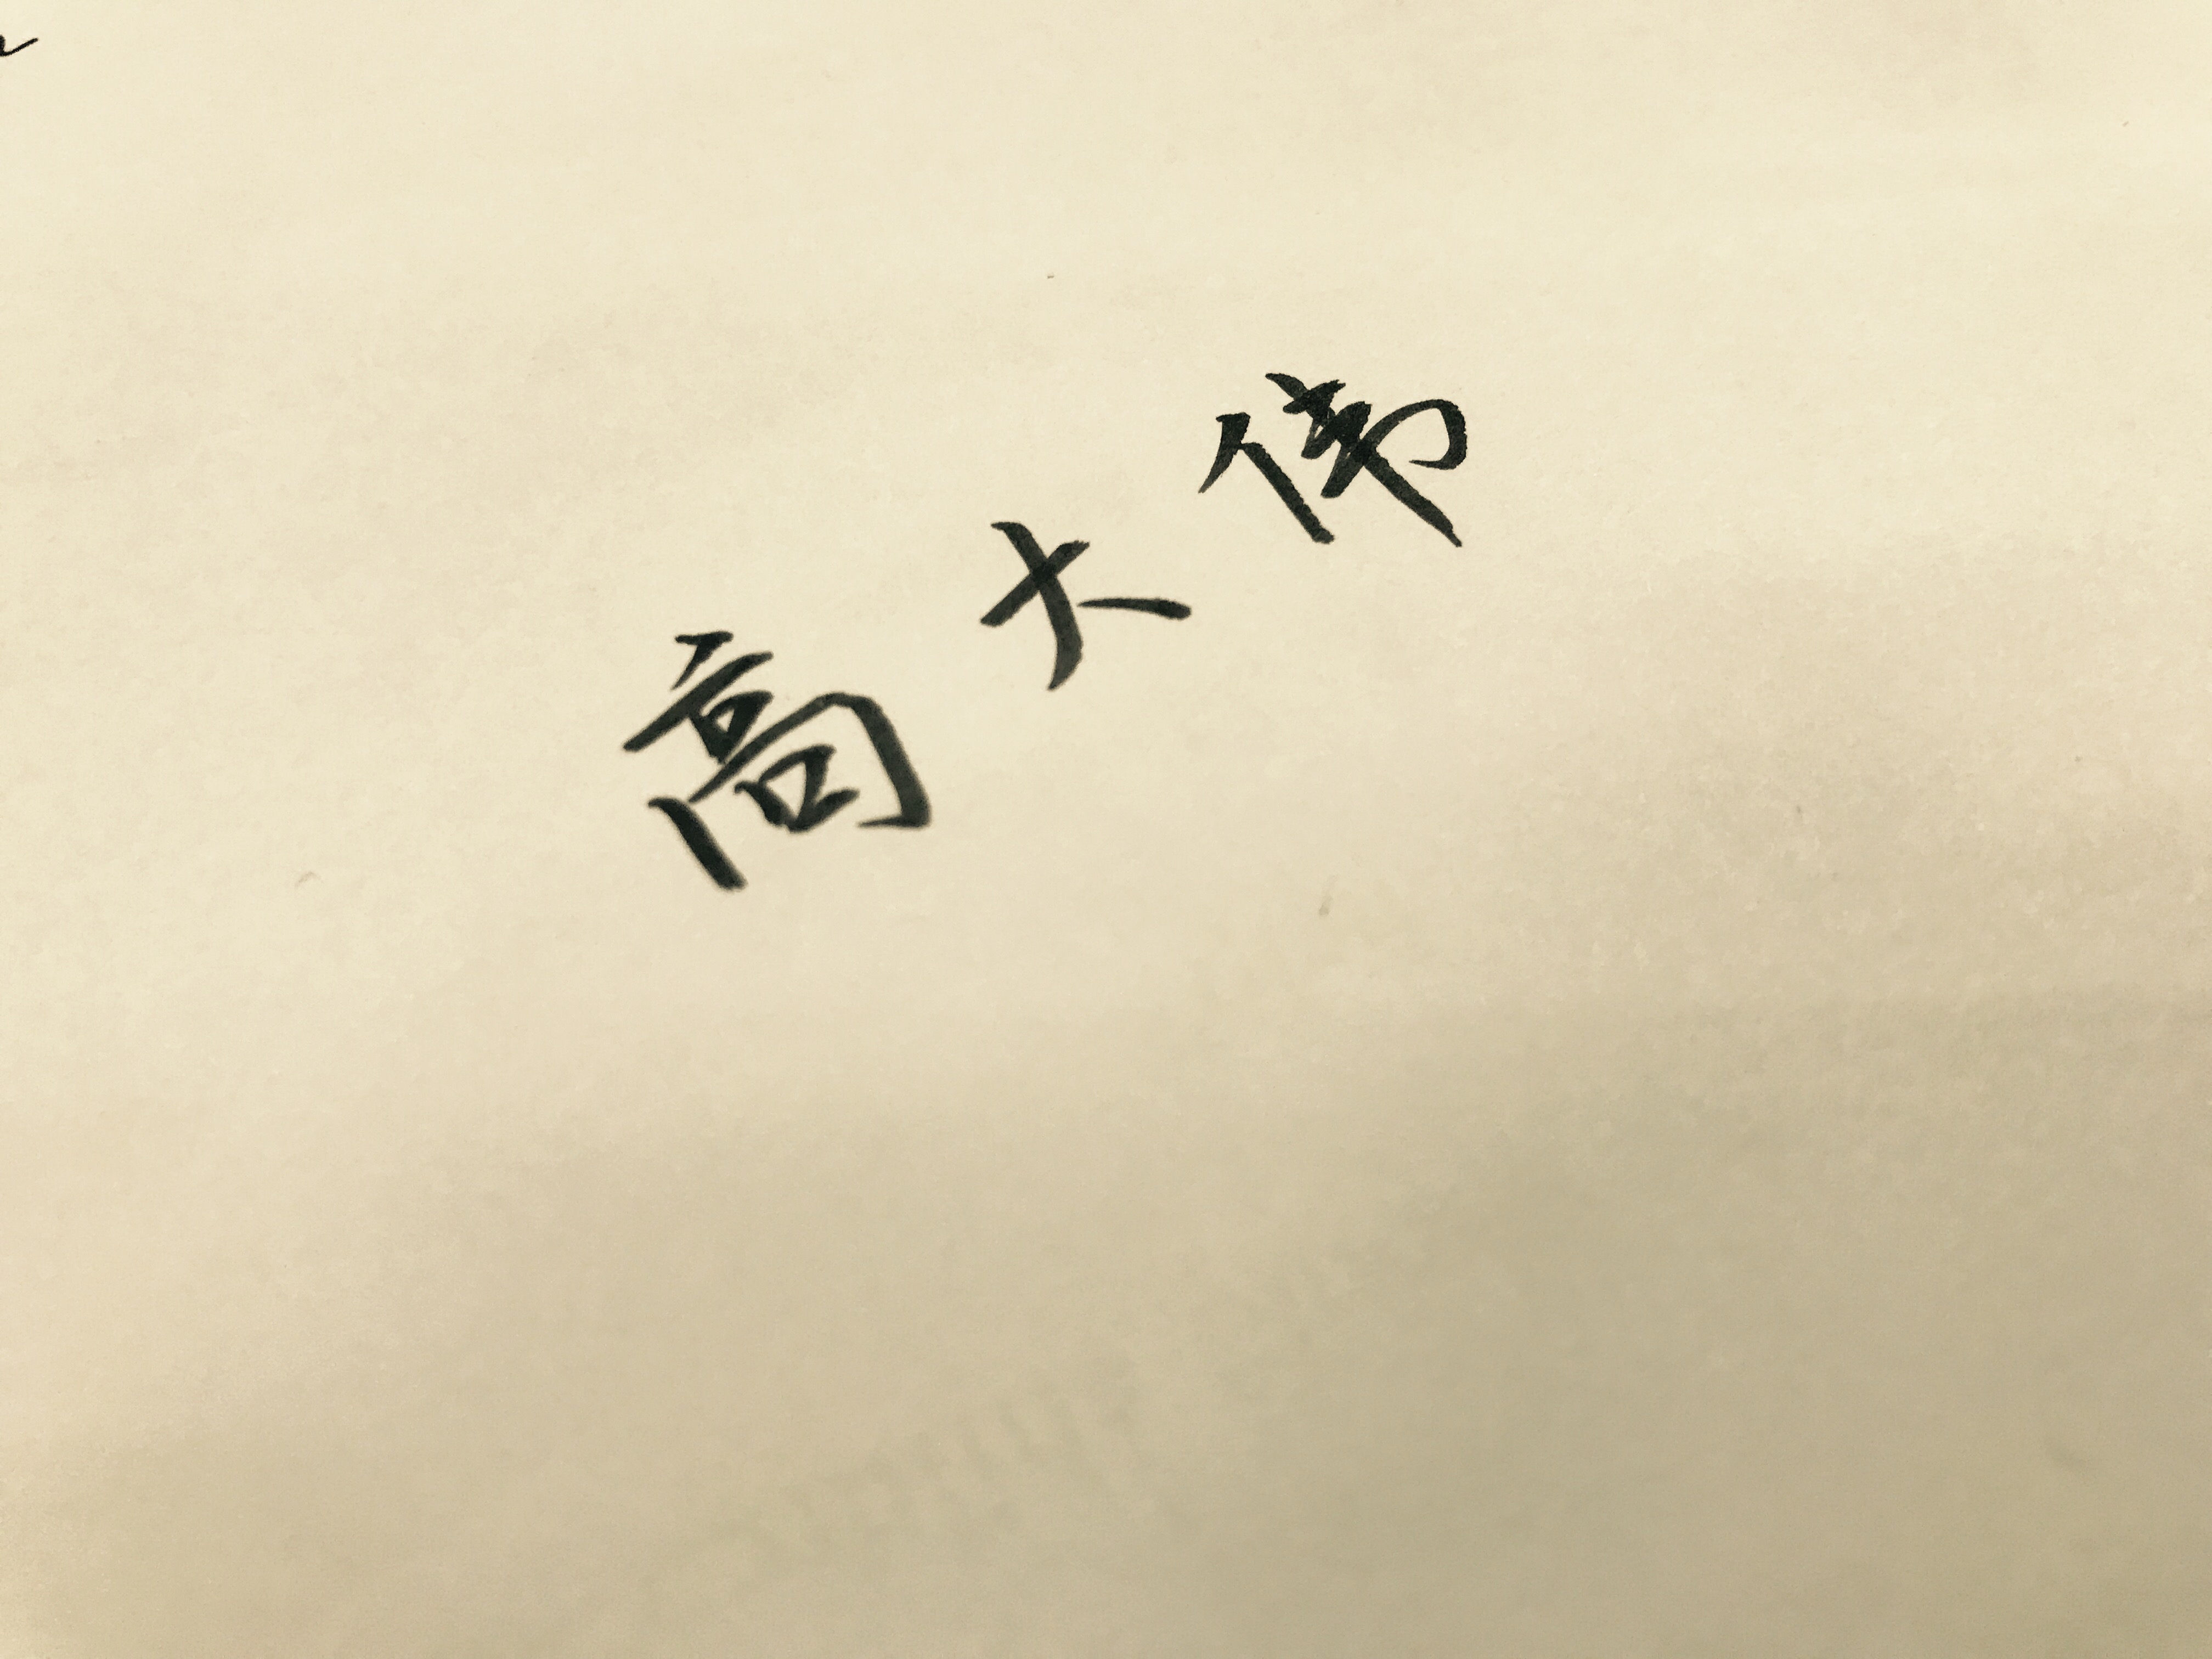 高大伟